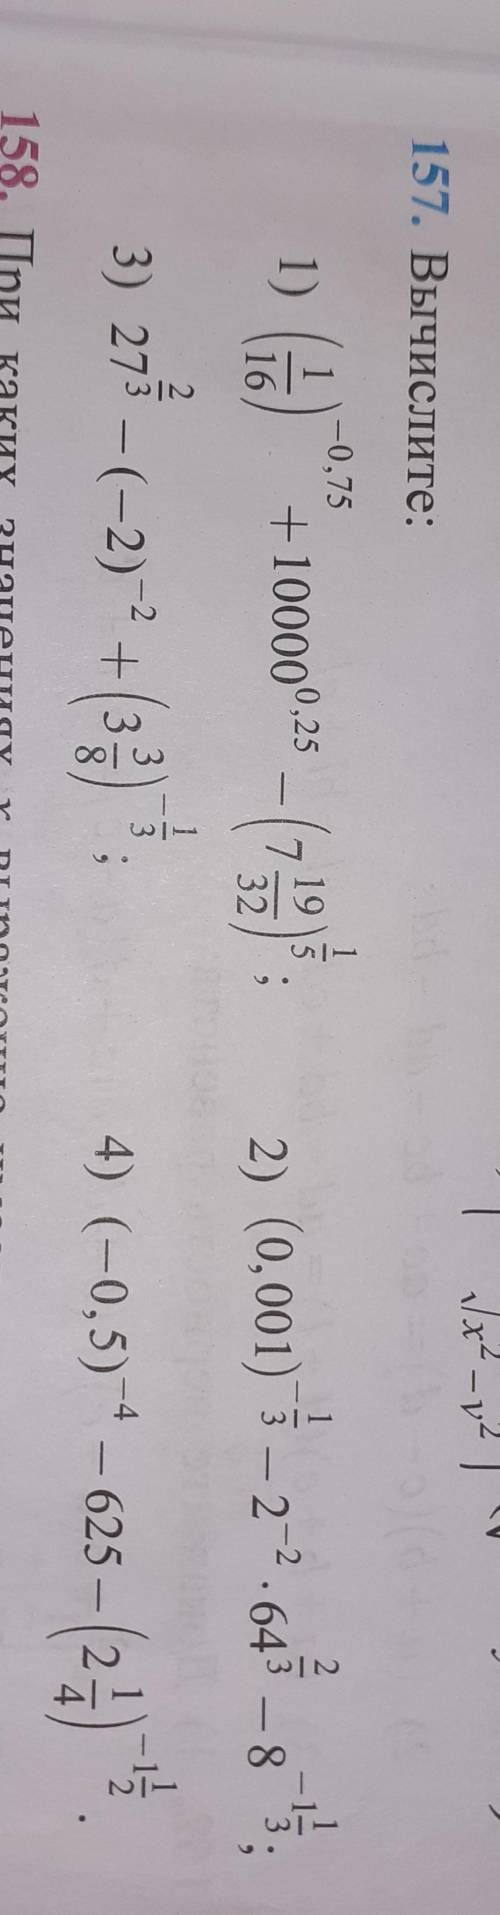 √x² − y²
157. Вычислите:
1) (1/16)^(−0,75) + 10000^(0,25) − (7 19/32)^(1/5); 2) (0,001)^(−1/3) − 2^(−2) · 64^(2/3) − 8^(−1 1/3);
3) 27^(2/3) − (−2)^(−2) + (3 3/8)^(−1/3); 4) (−0,5)^(−4) − 625 − (2 1/4)^(−1 1/2).
158. При каких значениях x выражение